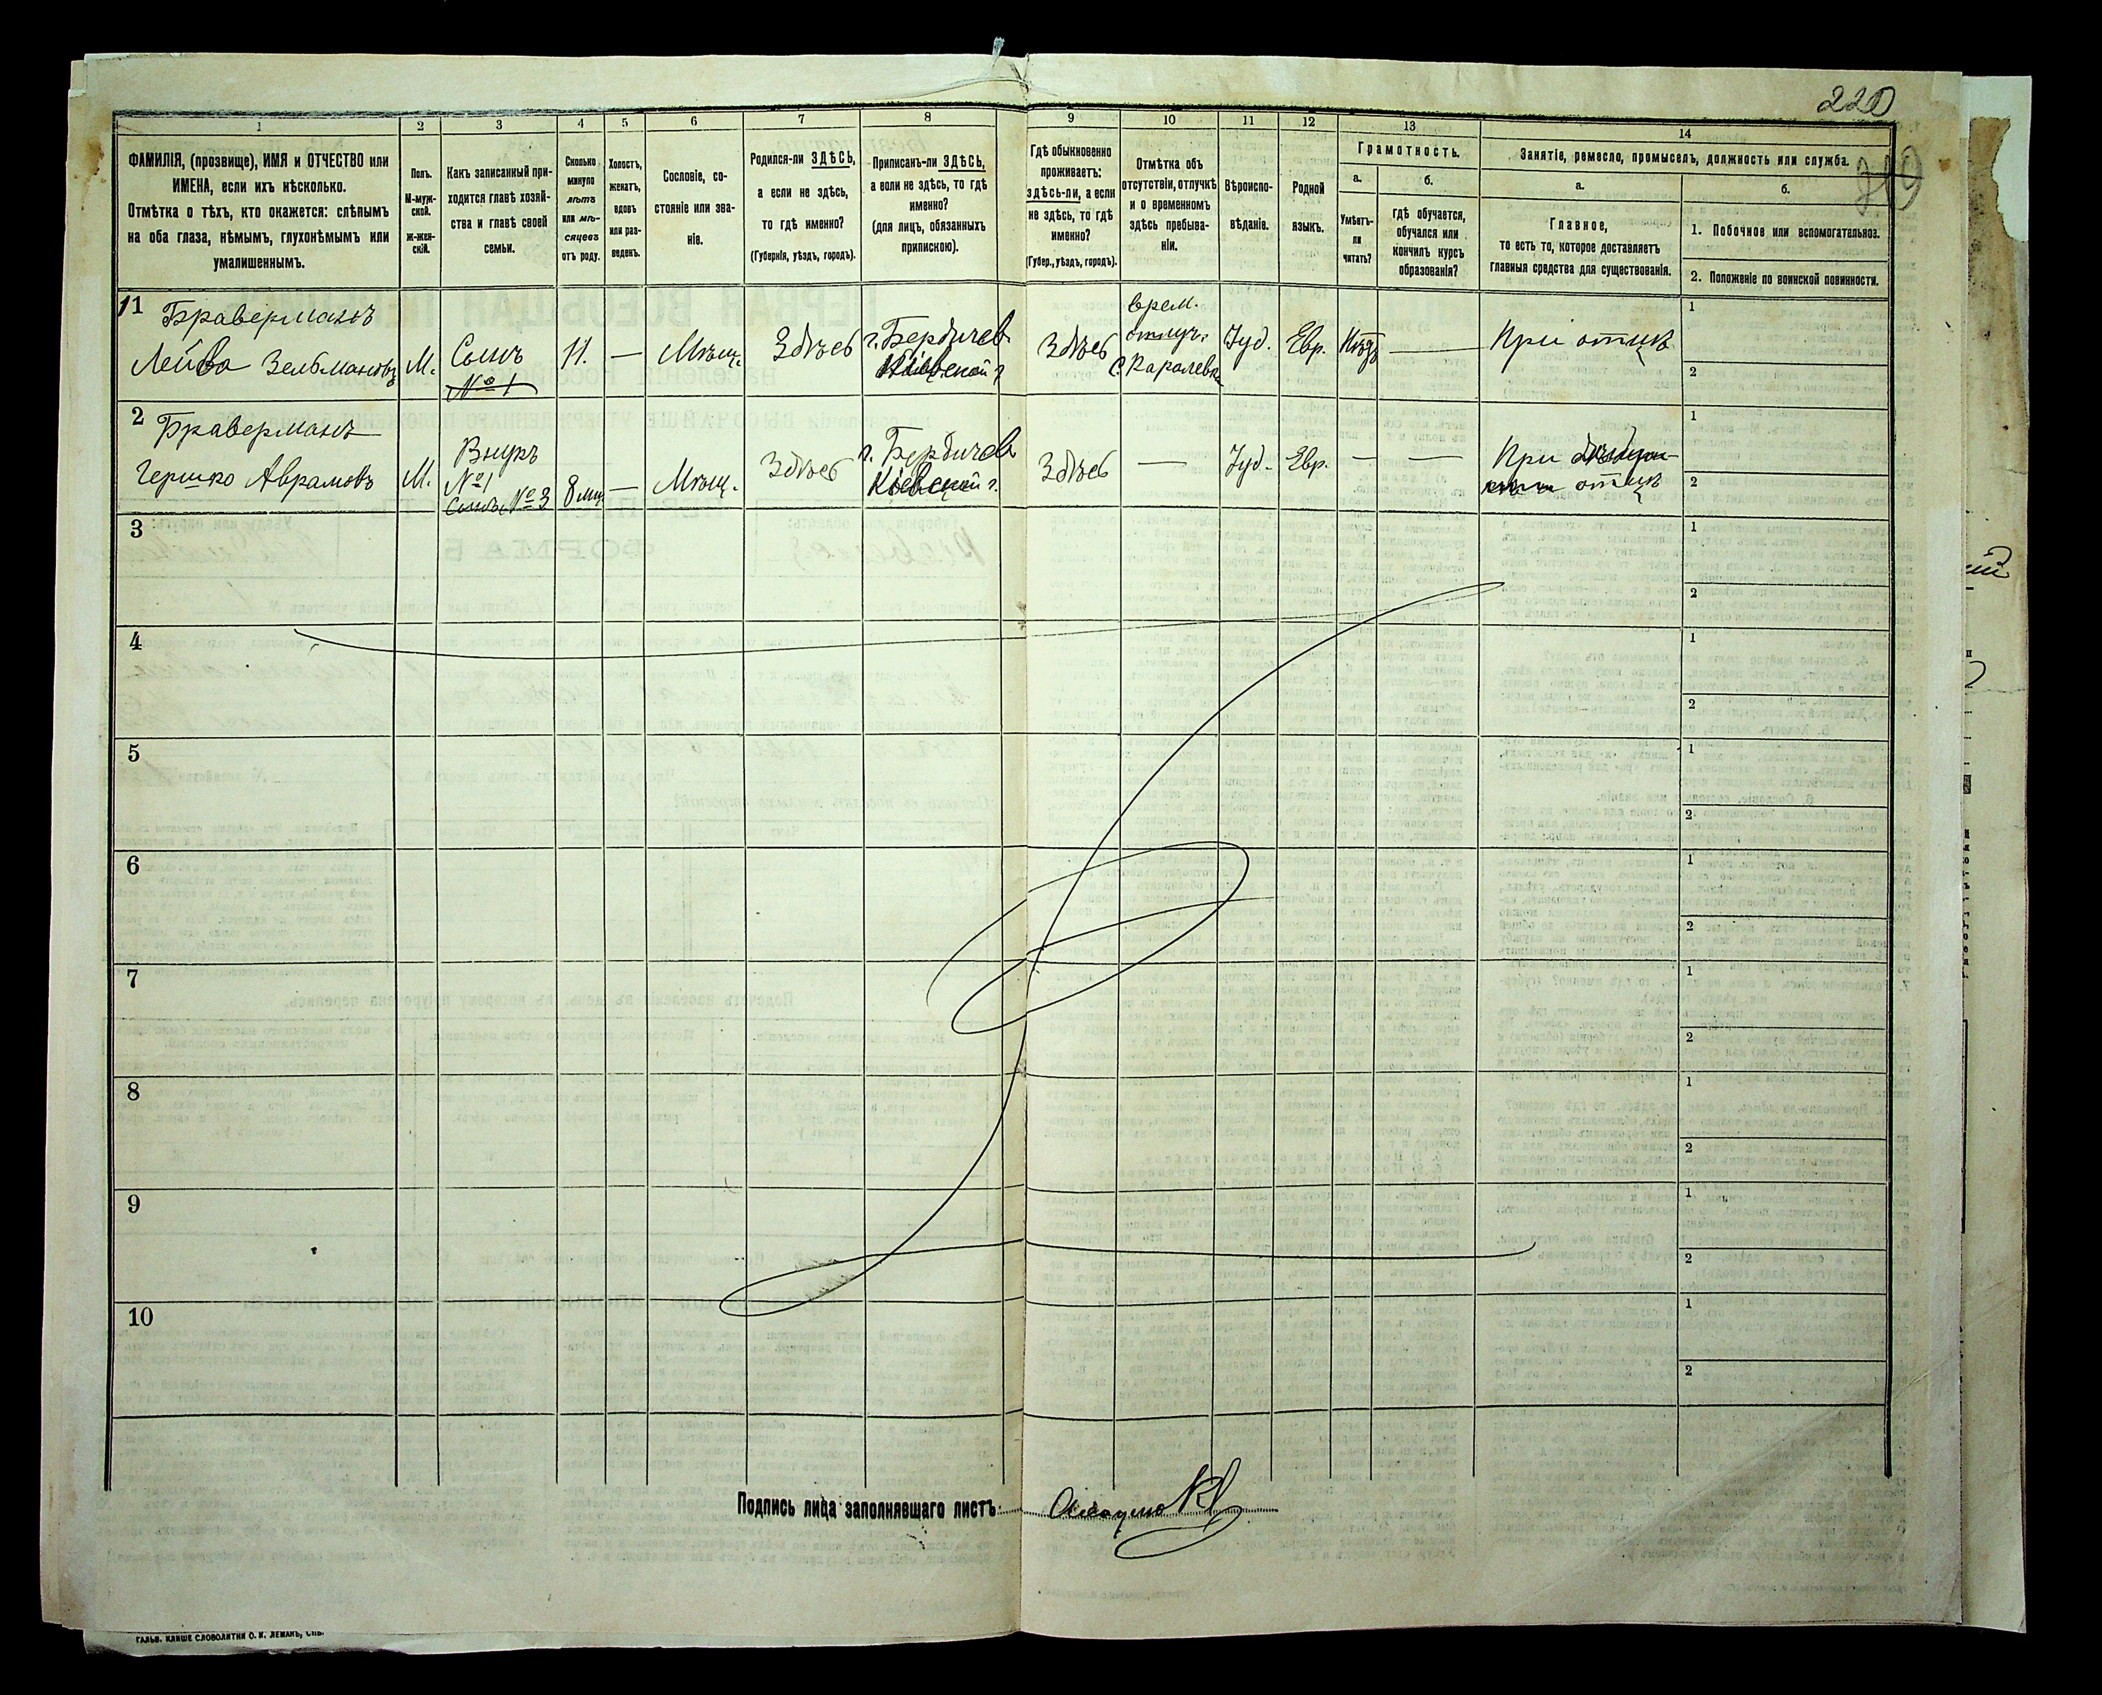 220
1
2
3
4
5
6
7
8
9
10
11
12
13
14
ФАМИЛІЯ, (прозвище), ИМЯ и ОТЧЕСТВО или
ИМЕНА, если ихъ нѣсколько.
Отмѣтка о тѣхъ, кто окажется: слѣпымъ
на оба глаза, нѣмымъ, глухонѣмымъ или
умалишеннымъ.
Полъ.
М-муж-
ской.
Ж-жен-
скій.
Какъ записанный при-
ходится главѣ хозяй-
ства и главѣ своей
семьи.
Сколько
минуло
лѣтъ
или мѣ-
сяцевъ
отъ роду.
Холостъ,
женатъ,
вдовъ
или раз-
веденъ.
Сословіе, со-
стояніе или зва-
ніе.
Родился-ли ЗДѢСЬ,
а если не здѣсь,
то гдѣ именно?
(Губернія, уѣздъ, городъ).
Приписанъ-ли ЗДѢСЬ,
а если не здѣсь, то гдѣ
именно?
(для лицъ, обязанныхъ
припискою).
Гдѣ обыкновенно
проживаетъ:
здѣсь-ли, а если
не здѣсь, то гдѣ
именно?
(Губер., уѣздъ, городъ).
Отмѣтка объ
отсутствіи, отлучкѣ
и о временномъ
здѣсь пребыва-
ніи.
Вѣроиспо-
вѣданіе.
Родной
языкъ.
Грамотность.
а.
Умѣетъ-
ли
читать?
б.
гдѣ обучается,
обучался или
кончилъ курсъ
образованія?
Занятіе, ремесло, промыселъ, должность или служба.
а.
Главное,
то есть то, которое доставляетъ
главныя средства для существованія.
б.
1. Побочное или вспомогательное.
2. Положеніе по воинской повинности.
11 Браверманъ
Лейба Зельмановъ
М.
Сынъ
№ 1
11.
—
Мѣщ.
Здѣсь
г. Бердичевъ
Кіевской г.
Здѣсь
врем.
отлуч.
Іуд.
Евр.
Нѣтъ
—
При отцѣ
1
2
2 Браверманъ
Гершко Аврамовъ
М.
Внукъ
№ 1
Сынъ № 3
8 мц.
—
Мѣщ.
Здѣсь
г. Бердичевъ
Кіевской г.
Здѣсь
—
Іуд.
Евр.
—
—
При
отцѣ
1
2
3
1
2
4
1
2
5
1
2
6
1
2
7
1
2
8
1
2
9
1
2
10
1
2
Подпись лица заполнявшаго листъ
ГАЛЬВ. КЛИШЕ СЛОВОЛИТНИ О. И. ЛЕМАНЪ, СПБ.